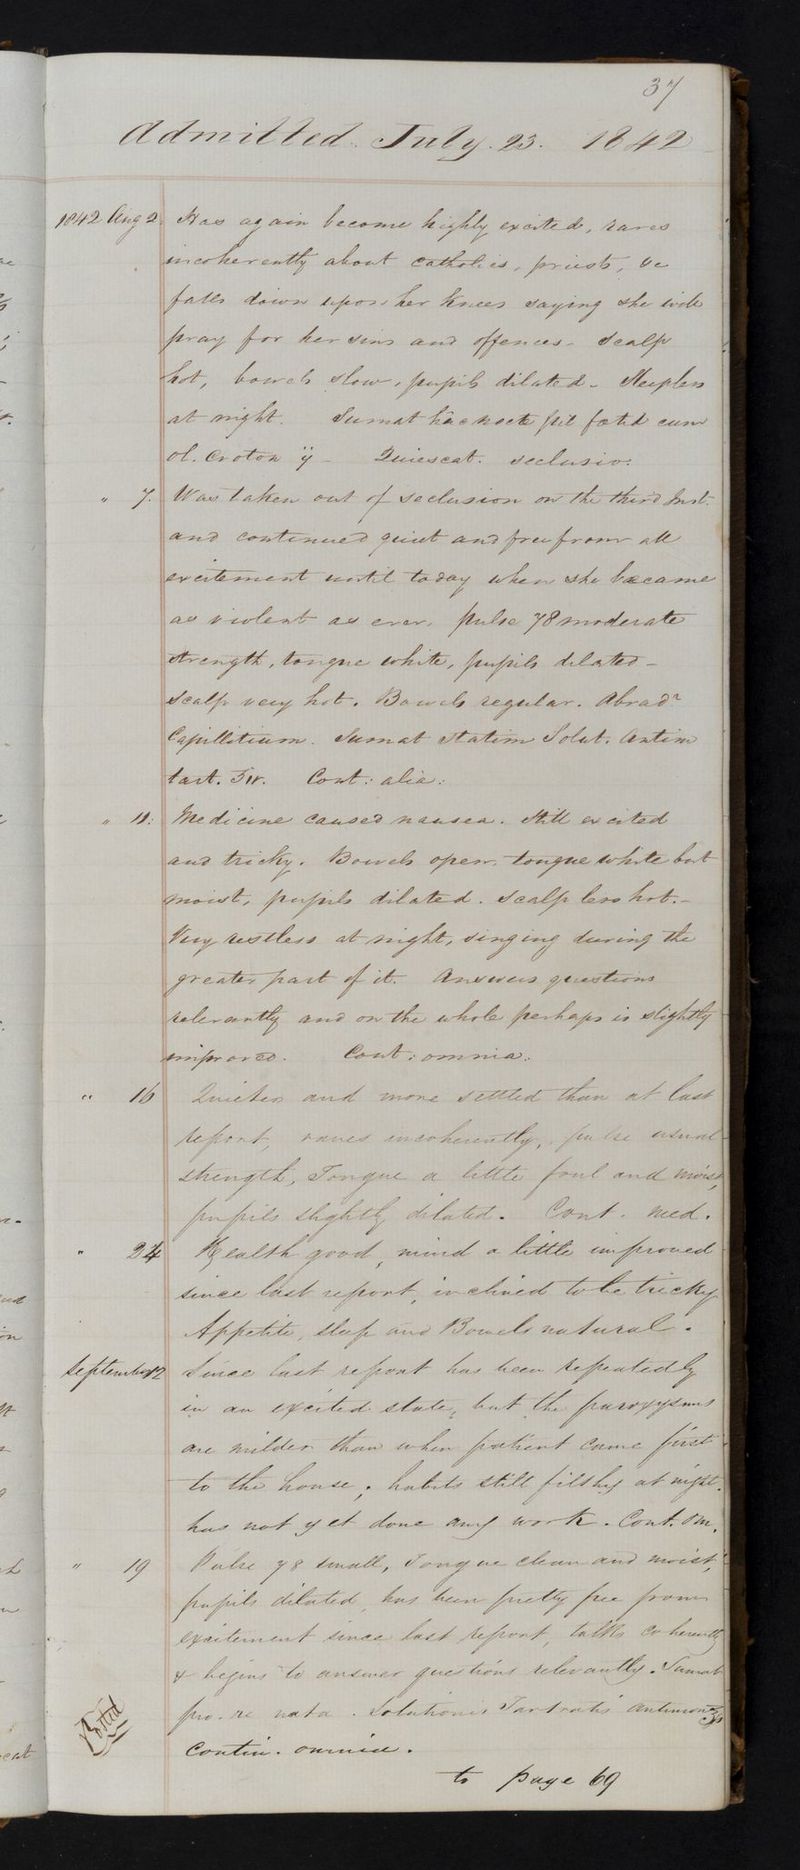 37
Admitted. July. 23. 1842
1842 Aug 2. Has again become highly excited, raves
incoherently about catholics, priests, &c
falls down upon her knees saying she will
pray for her sins and offences - Scalp
hot, bowels slow, pupils dilated - Sleepless
at night. Sumat hac nocte pil foetid cum
ol. Croton ij - Quiescat. seclusio:
" 7. Was taken out of seclusion on the third Inst.
and continued quiet and free from all
excitement until today when she became
as violent as ever. pulse 78 moderate
strength, tongue white, pupils dilated -
scalp very hot. Bowels regular. Abradr
Capillitium. Sumat statim Solut. Antim
tart. Cont: alia:
" 11: Medicine caused nausea. Still excited
and tricky. Bowels open. tongue white but
moist, pupils dilated. scalp less hot. -
Very restless at night, singing during the
greater part of it. Answers questions
relevantly and on the whole perhaps is slightly
improved. Cont: omnia:
" 16 Quieter and more settled than at last
report, raves incoherently, pulse usual
strength, Tongue a little foul and moist,
pupils slightly dilated. Cont. med.
" 24 Health good, mind a little improved
since last report, inclined to be tricky
Appetite, sleep and Bowels natural.
September 12 Since last report has been repeatedly
in an excited state, but the paroxysms
are milder than when patient came first
to the house; habits still filthy at night.
has not yet done any work. Cont. om.
" 19 Pulse 78 small, Tongue clean and moist,
pupils dilated, has been pretty free from
excitement since last report, talks coherently
& begins to answer questions relevantly. Sumat
pro. re nata. Solutionis Tartratis antimon
Contin. omnia.
Posted
to page 69